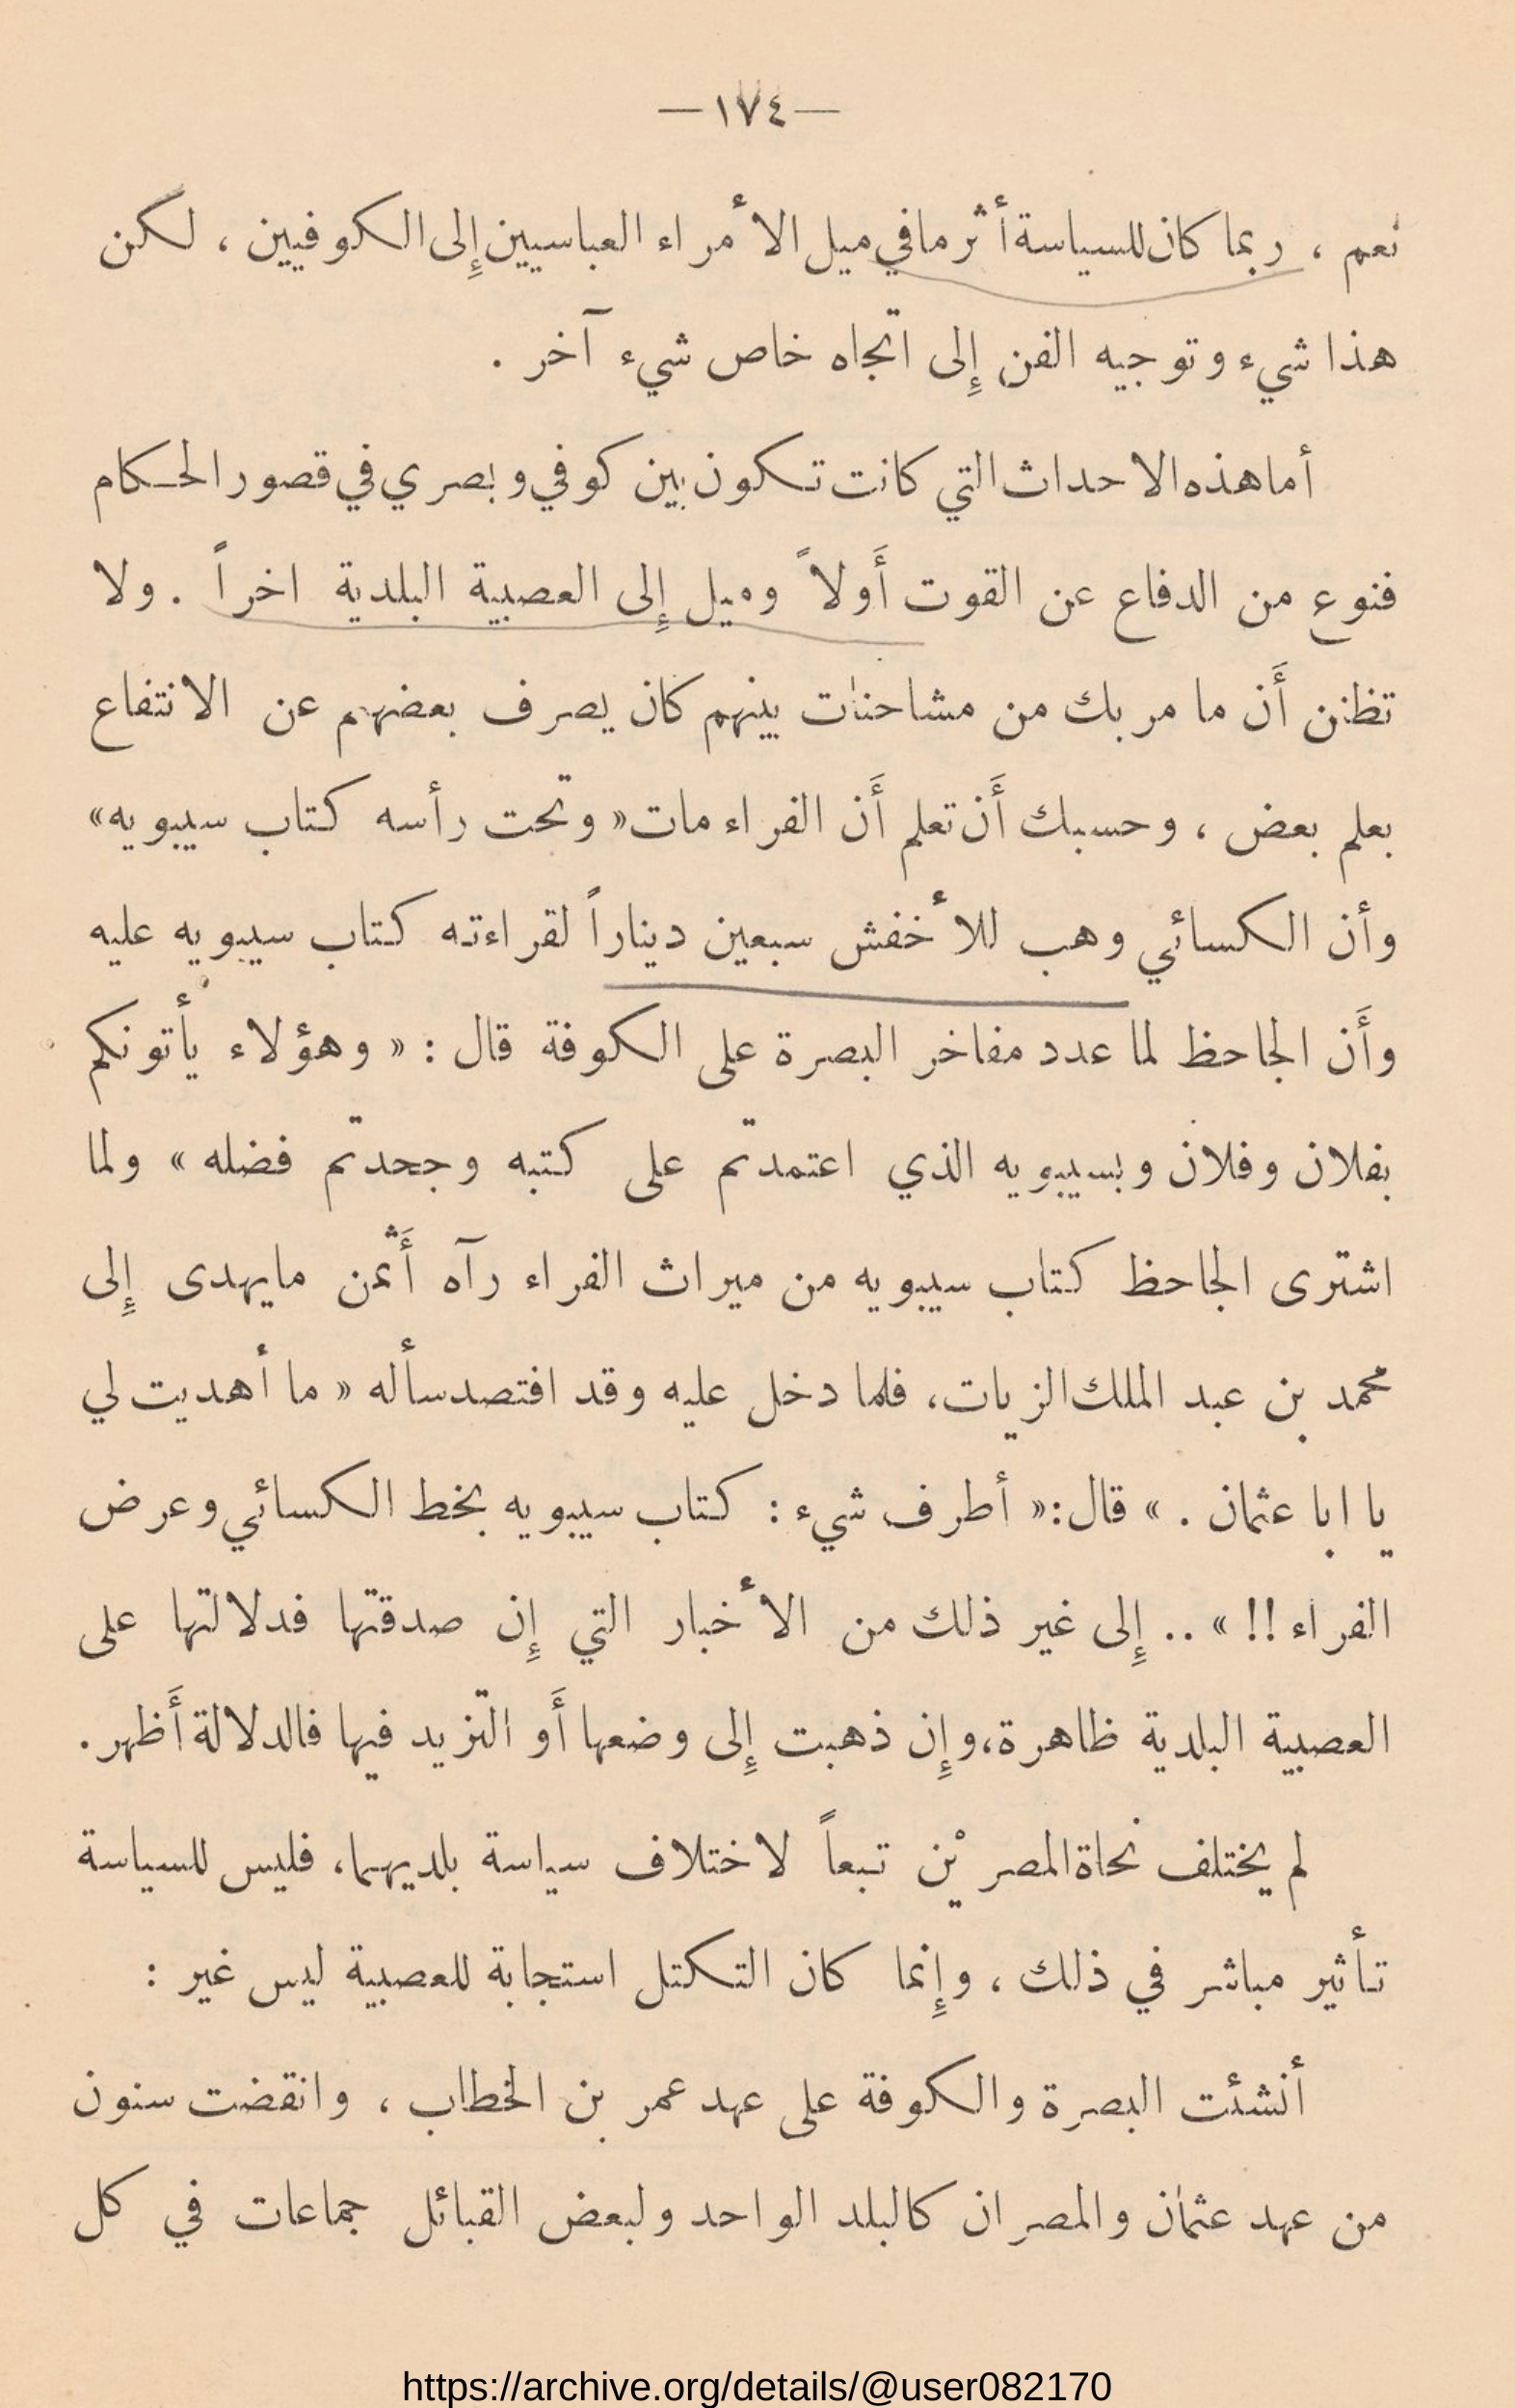 —١٧٤—
نعم ، ربما كان للسياسة أثر ما في ميل الأمراء العباسيين إِلى الكوفيين ، لكن
هذا شيء وتوجيه الفن إِلى اتجاه خاص شيء آخر .
أما هذه الاحداث التي كانت تكون بين كوفي وبصري في قصور الحكام
فنوع من الدفاع عن القوت أَولاً وميل إِلى العصبية البلدية اخراً . ولا
تظنن أَن ما مر بك من مشاحنات بينهم كان يصرف بعضهم عن الانتفاع
بعلم بعض ، وحسبك أَن تعلم أَن الفراء مات « وتحت رأسه كتاب سيبويه »
وأن الكسائي وهب للأخفش سبعين ديناراً لقراءته كتاب سيبويه عليه
وأَن الجاحظ لما عدد مفاخر البصرة على الكوفة قال : « وهؤلاء يأتونكم
بفلان وفلان وبسيبويه الذي اعتمدتم على كتبه وجحدتم فضله » ولما
اشترى الجاحظ كتاب سيبويه من ميراث الفراء رآه أَثمن مايهدى إِلى
محمد بن عبد الملك الزيات، فلما دخل عليه وقد افتصد سأله « ما أهديت لي
يا ابا عثمان . » قال: « أطرف شيء : كتاب سيبويه بخط الكسائي وعرض
الفراء !! » .. إِلى غير ذلك من الأخبار التي إِن صدقتها فدلالتها على
العصبية البلدية ظاهرة، وإِن ذهبت إِلى وضعها أَو التزيد فيها فالدلالة أَظهر.
لم يختلف نحاة المصريْن تبعاً لاختلاف سياسة بلديهما، فليس للسياسة
تأثير مباشر في ذلك ، وإِنما كان التكتل استجابة للعصبية ليس غير :
أنشئت البصرة والكوفة على عهد عمر بن الخطاب ، وانقضت سنون
من عهد عثمان والمصران كالبلد الواحد ولبعض القبائل جماعات في كل
https://archive.org/details/@user082170